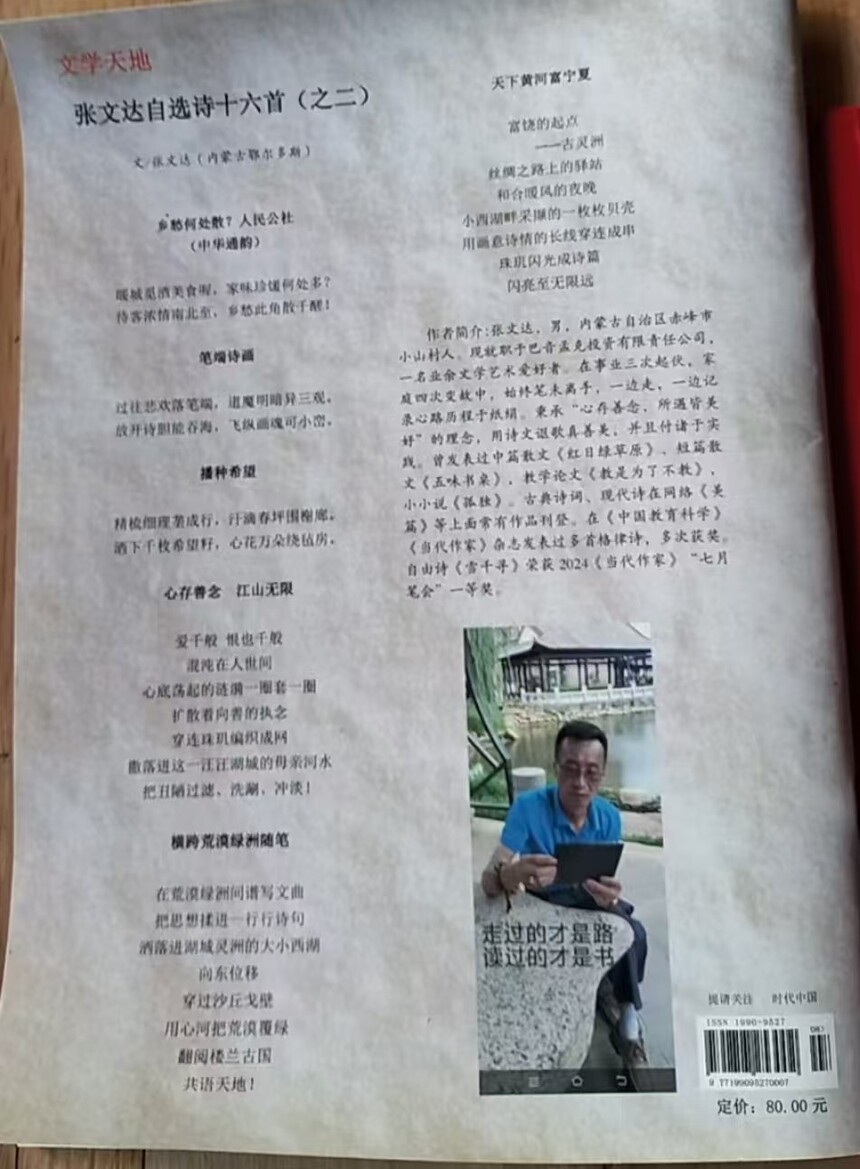 文学天地
张文达自选诗十六首（之二）
文/张文达（内蒙古鄂尔多斯）
乡愁何处散？人民公社
（中华通韵）
暖城觅酒美食喔，家味珍馐何处多？
待客浓情南北至，乡愁此角散千醒！
笔端诗画
过往悲欢落笔端，道魔明暗异三观。
放开诗胆能吞海，飞纵画魂可小峦。
播种希望
精梳细理垄成行，汗滴春坪围榭廊。
洒下千枚希望籽，心花万朵绕毡房。
心存善念　江山无限
爱千般 恨也千般
混沌在人世间
心底荡起的涟漪一圈套一圈
扩散着向善的执念
穿连珠玑编织成网
撒落进这一汪汪湖城的母亲河水
把丑陋过滤、洗涮、冲淡！
横跨荒漠绿洲随笔
在荒漠绿洲间谱写文曲
把思想揉进一行行诗句
洒落进湖城灵洲的大小西湖
向东位移
穿过沙丘戈壁
用心河把荒漠覆绿
翻阅楼兰古国
共语天地！
天下黄河富宁夏
富饶的起点
——古灵洲
丝绸之路上的驿站
和台暖风的夜晚
小西湖畔采撷的一枚枚贝壳
用画意诗情的长线穿连成串
珠玑闪光成诗篇
闪亮至无限远
作者简介：张文达，男，内蒙古自治区赤峰市
小山村人。现就职于巴音孟克投资有限责任公司，
一名业余文学艺术爱好者。在事业三次起伏，家
庭四次变故中，始终笔未离手，一边走，一边记
录心路历程于纸绢。秉承“心存善念，所遇皆美
好”的理念，用诗文讴歌真善美，并且付诸于实
践。曾发表过中篇散文《红日绿草原》、短篇散
文《五味书桌》，教学论文《教是为了不教》，
小小说《孤独》。古典诗词、现代诗在网络《美
篇》等上面常有作品刊登。在《中国教育科学》
《当代作家》杂志发表过多首格律诗，多次获奖。
自由诗《雪千寻》荣获2024《当代作家》“七月
笔会”一等奖。
走过的才是路
读过的才是书
提请关注　时代中国
ISSN 1990-9527
08>
9 771990 5270007
定价：80.00元